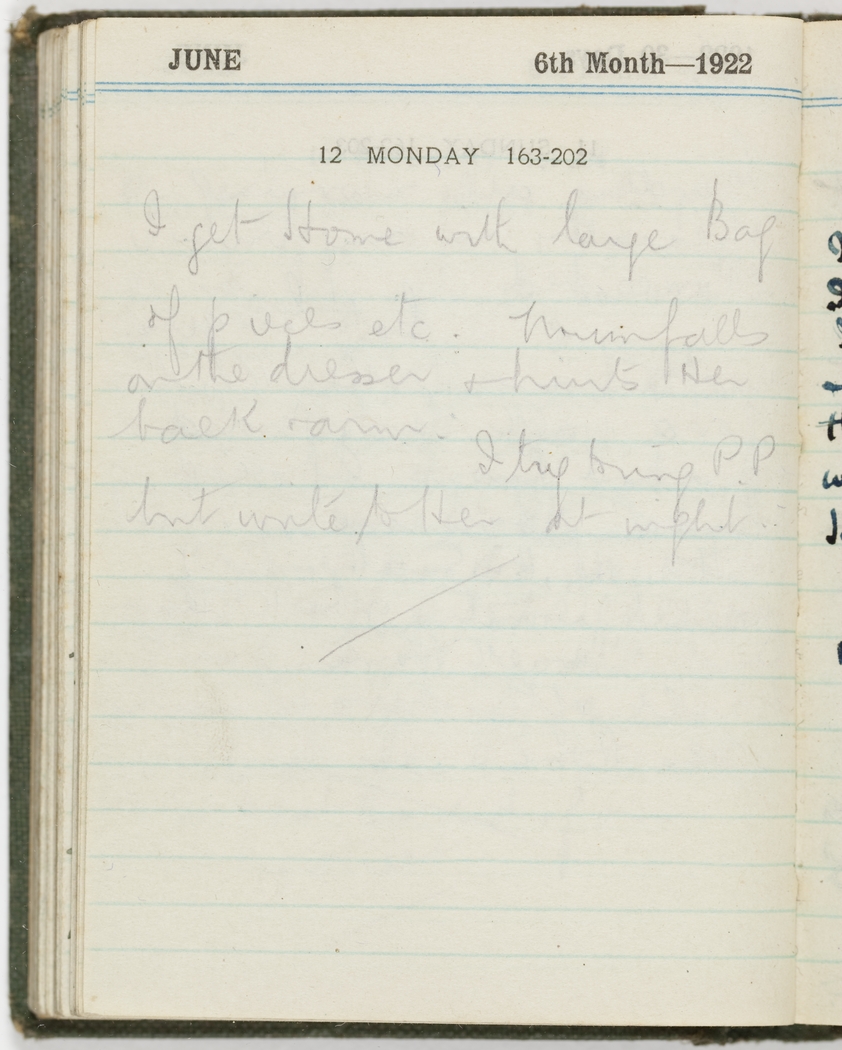 JUNE 6th Month—1922
12 MONDAY 163-202
I get Home with large Bag
of pieces etc. Mum falls
on the dresser & hurts Her
back & arm.
I try bring P.P
but write to Her at night.